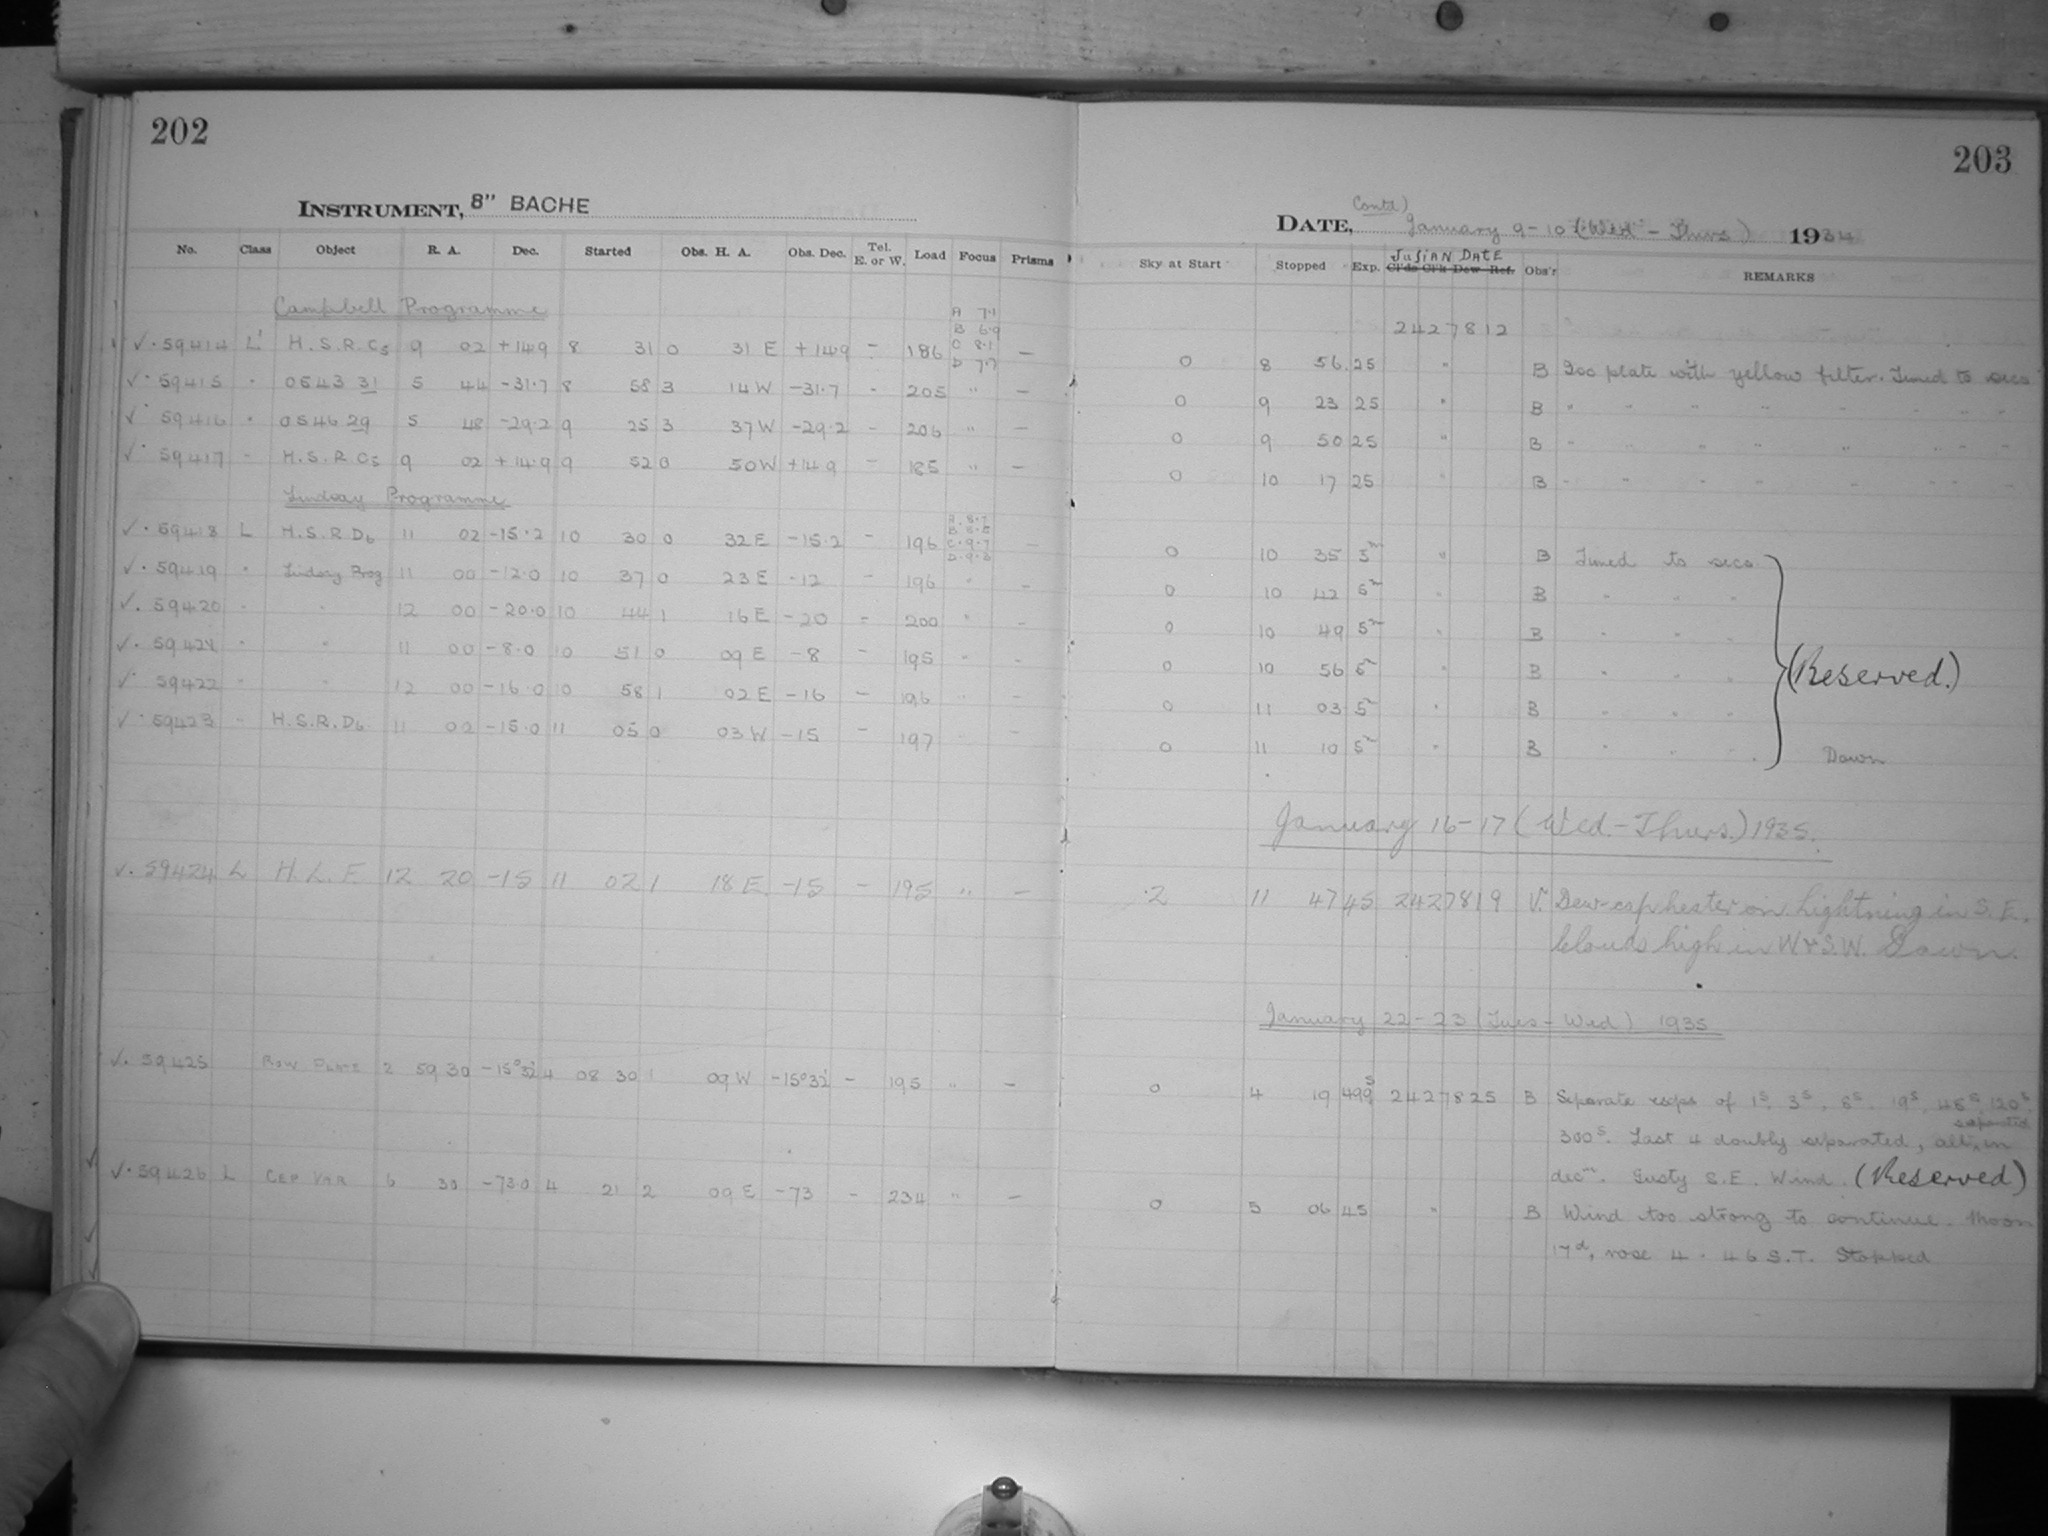 202
203
INSTRUMENT, 8" BACHE
DATE, Contd) January 9-10 (Wed - Thurs) 1934
No. Class Object R. A. Dec. Started Obs. H. A. Obs. Dec. Tel. E. or W. Load Focus Prisms Sky at Start Stopped Exp. JULIAN DATE Cl'ds Cl'k Dew Ref. Obs'r REMARKS
Campbell Programme
2427812
A 7.1
B 6.9
C 8.1
D 7.7
✓ · 59414 L' H.S.R.C5 9 02 +14.9 8 31 0 31 E +14.9 - 186 — 0 8 56 25 " B Zoo plate with yellow filter. Timed to secs
✓ · 59415 " 054331 5 44 -31.7 8 58 3 14 W -31.7 - 205 " — 0 9 23 25 " B " " " " " " "
✓ · 59416 " 054629 5 48 -29.2 9 25 3 37 W -29.2 - 206 " — 0 9 50 25 " B " " " " " " "
✓ · 59417 - H.S.R C5 9 02 +14.9 9 52 0 50 W +14.9 - 185 " — 0 10 17 25 " B " " " " " " "
Lindsay Programme
A. 8.7
C. 9.7
✓ · 59418 L H.S.R D6 11 02 -15.2 10 30 0 32 E -15.2 - 196 — 0 10 35 5m " B Timed to secs
✓ · 59419 " Lindsay Prog 11 00 -12.0 10 37 0 23 E -12 - 196 " — 0 10 42 5m B " " "
✓ . 59420 " " 12 00 -20.0 10 44 1 16 E -20 - 200 " - 0 10 49 5m " B " " "
✓ . 59421 " " 11 00 -8.0 10 51 0 09 E -8 - 195 " - 0 10 56 5m " B " " "
(Reserved.)
✓ · 59422 " " 12 00 -16.0 10 58 1 02 E -16 - 196 " - 0 11 03 5m " B " " "
✓ · 59423 - H.S.R.D6 11 02 -15.0 11 05 0 03 W -15 - 197 " - 0 11 10 5m " B " " " Dawn
January 16-17 (Wed.-Thurs.) 1935.
✓ . 59424 L H.L.E 12 20 -15 11 02 1 18 E -15 - 195 " — 2 11 47 45 2427819 V. Dew-cap heater on. Lightning in S.E.
Clouds high in W & S.W. Dawn.
January 22-23 (Tues - Wed) 1935
✓ . 59425 Bow Plate 2 59 30 -15°32' 4 08 30 1 09 W -15°32' - 195 " — 0 4 19 499s 2427825 B Separate exps of 1s, 3s, 8s, 19s, 48s, 120s,
300s. Last 4 doubly separated, all separated in
decn. Gusty S.E. Wind. (Reserved)
✓ · 59426 L CEP VAR 6 30 -73.0 4 21 2 09 E -73 - 234 " — 0 5 06 45 " B Wind too strong to continue. Moon
17d, rose 4 . 46 S.T. Stopped